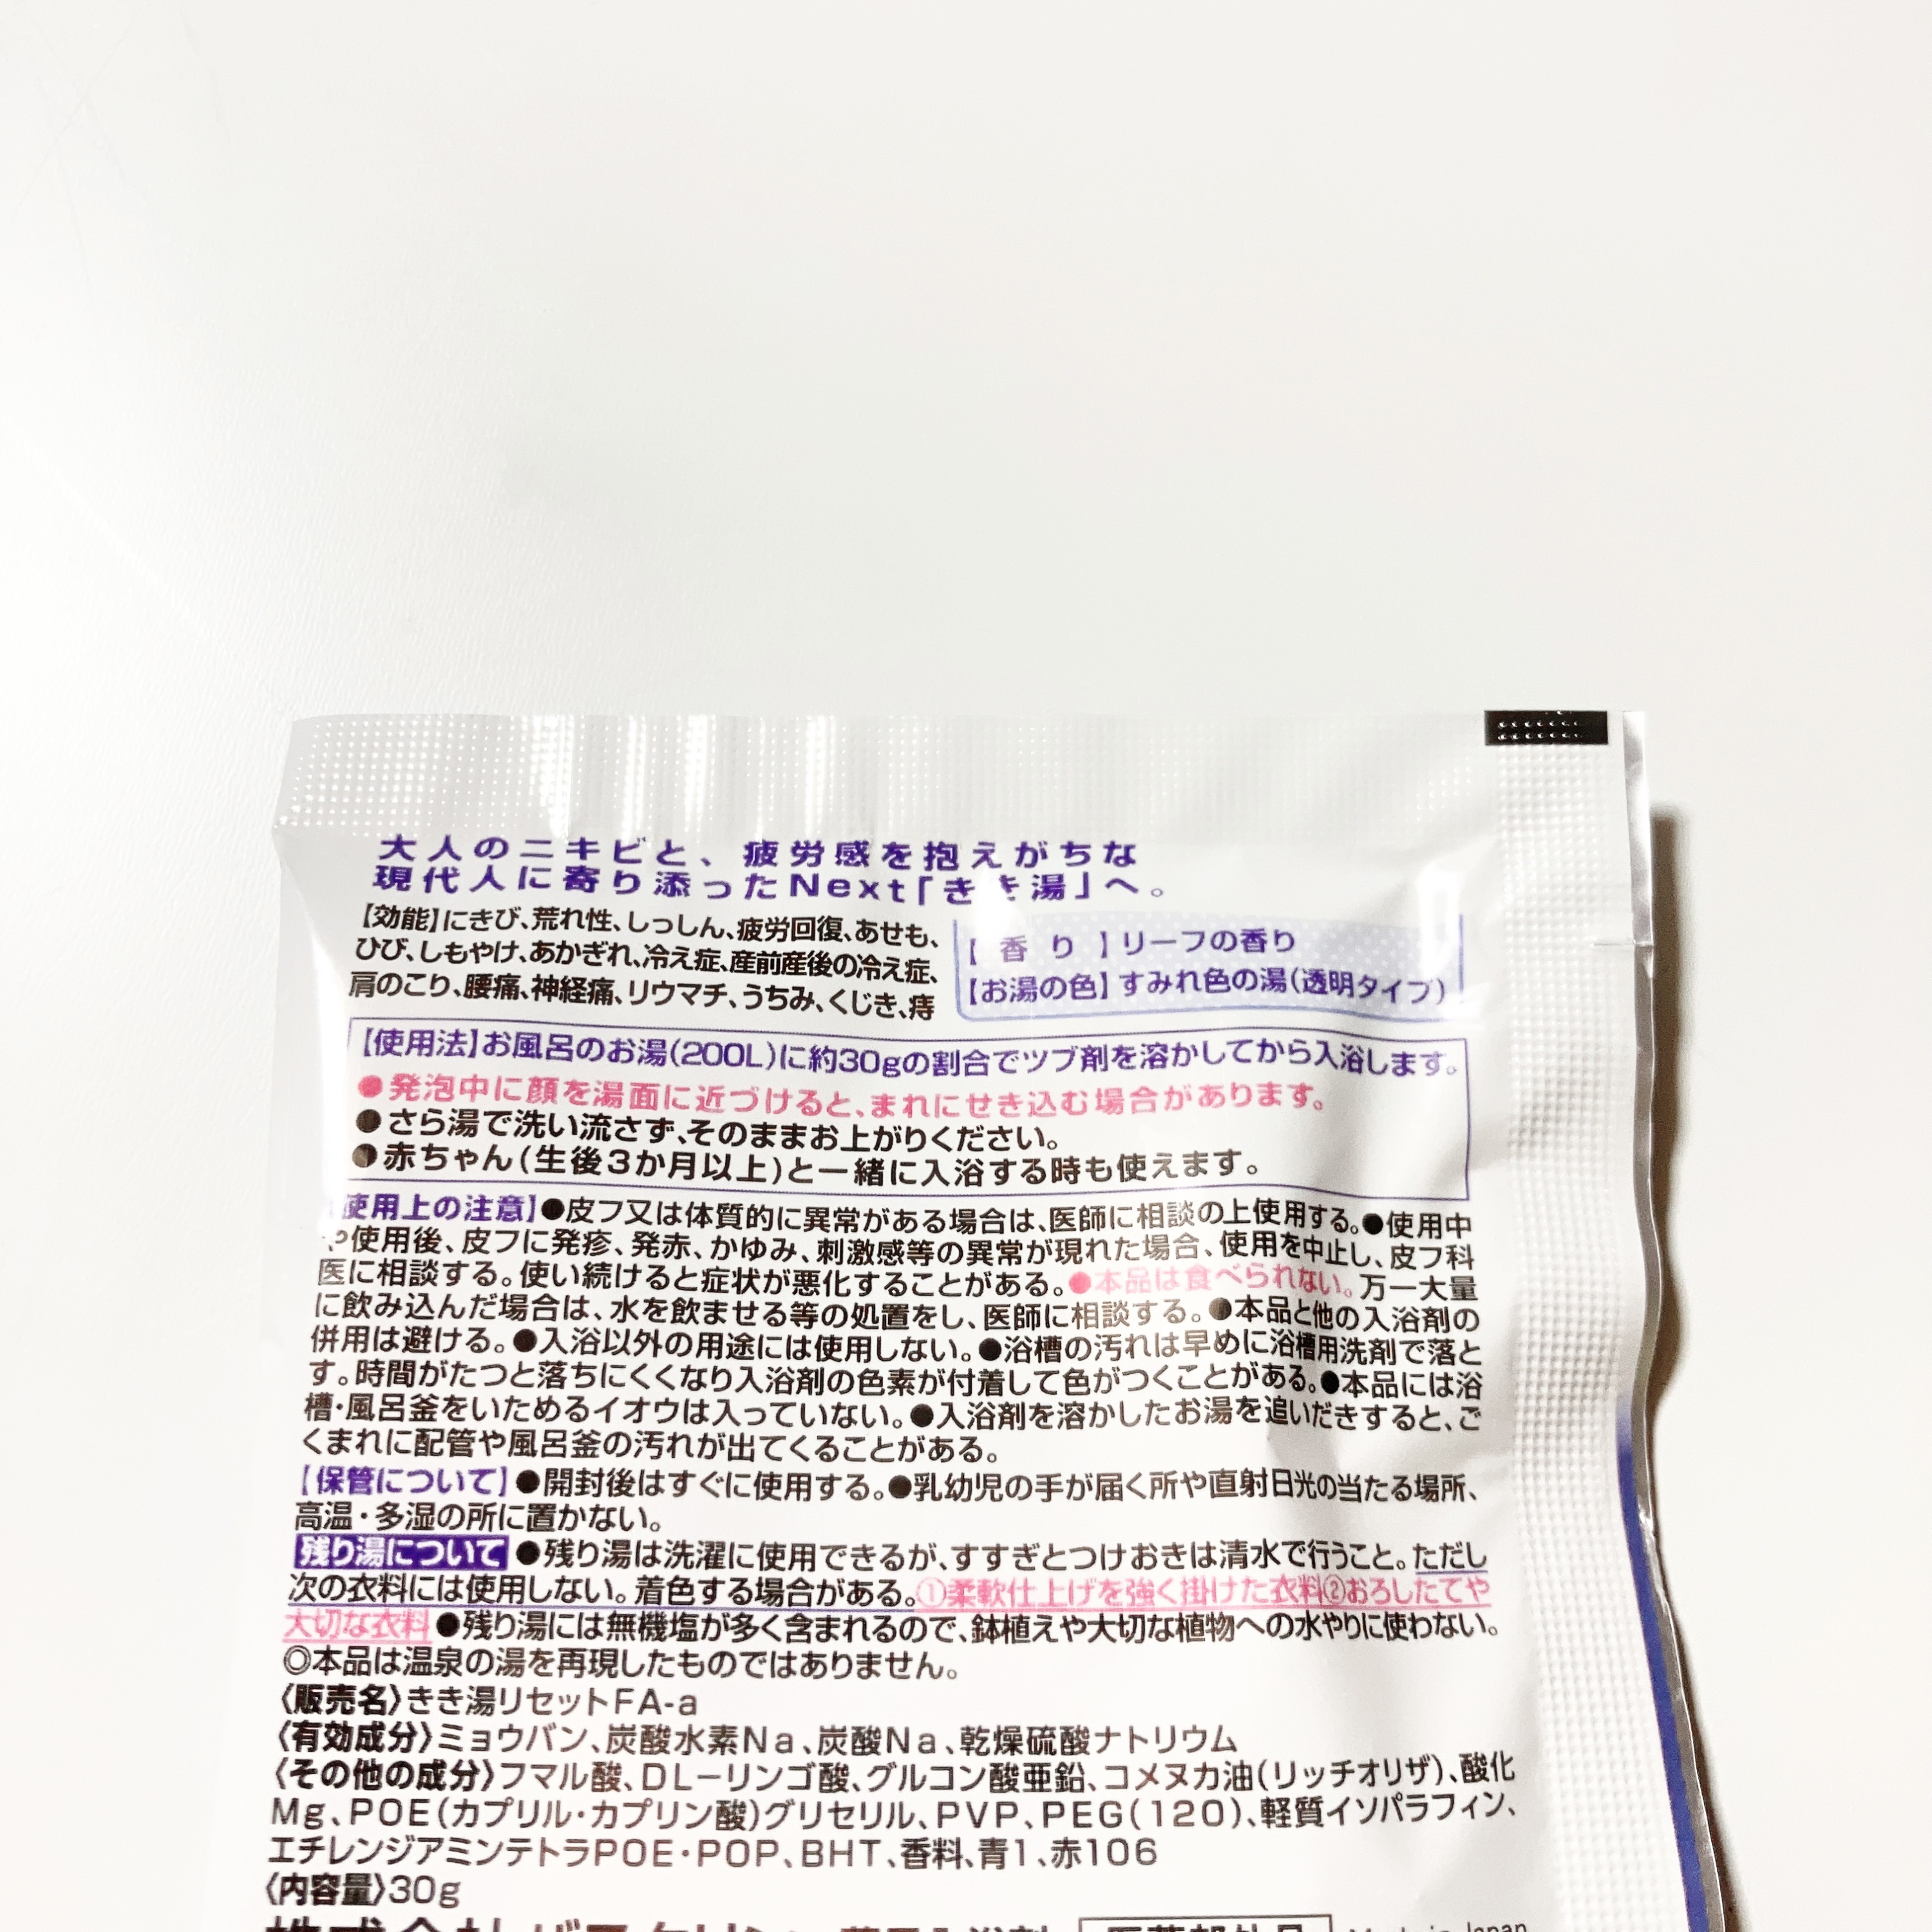 大人のニキビと、疲労感を抱えがちな
現代人に寄り添ったNext「きき湯」へ。
【効能】にきび、荒れ性、しっしん、疲労回復、あせも、
ひび、しもやけ、あかぎれ、冷え症、産前産後の冷え症、
肩のこり、腰痛、神経痛、リウマチ、うちみ、くじき、痔
【香り】リーフの香り
【お湯の色】すみれ色の湯(透明タイプ)
【使用法】お風呂のお湯(200L)に約30gの割合でツブ剤を溶かしてから入浴します。
●発泡中に顔を湯面に近づけると、まれにせき込む場合があります。
●さら湯で洗い流さず、そのままお上がりください。
●赤ちゃん(生後3か月以上)と一緒に入浴する時も使えます。
使用上の注意】●皮フ又は体質的に異常がある場合は、医師に相談の上使用する。●使用中
や使用後、皮フに発疹、発赤、かゆみ、刺激感等の異常が現れた場合、使用を中止し、皮フ科
医に相談する。使い続けると症状が悪化することがある。●本品は食べられない。万一大量
に飲み込んだ場合は、水を飲ませる等の処置をし、医師に相談する。●本品と他の入浴剤の
併用は避ける。●入浴以外の用途には使用しない。●浴槽の汚れは早めに浴槽用洗剤で落と
す。時間がたつと落ちにくくなり入浴剤の色素が付着して色がつくことがある。●本品には浴
槽・風呂釜をいためるイオウは入っていない。●入浴剤を溶かしたお湯を追いだきすると、ご
くまれに配管や風呂釜の汚れが出てくることがある。
【保管について】●開封後はすぐに使用する。●乳幼児の手が届く所や直射日光の当たる場所、
高温・多湿の所に置かない。
残り湯について ●残り湯は洗濯に使用できるが、すすぎとつけおきは清水で行うこと。ただし
次の衣料には使用しない。着色する場合がある。①柔軟仕上げを強く掛けた衣料②おろしたてや
大切な衣料 ●残り湯には無機塩が多く含まれるので、鉢植えや大切な植物への水やりに使わない。
◎本品は温泉の湯を再現したものではありません。
〈販売名〉きき湯リセットFA-a
〈有効成分〉ミョウバン、炭酸水素Na、炭酸Na、乾燥硫酸ナトリウム
〈その他の成分〉フマル酸、DL−リンゴ酸、グルコン酸亜鉛、コメヌカ油(リッチオリザ)、酸化
Mg、POE(カプリル・カプリン酸)グリセリル、PVP、PEG(120)、軽質イソパラフィン、
エチレンジアミンテトラPOE・POP、BHT、香料、青1、赤106
〈内容量〉30g